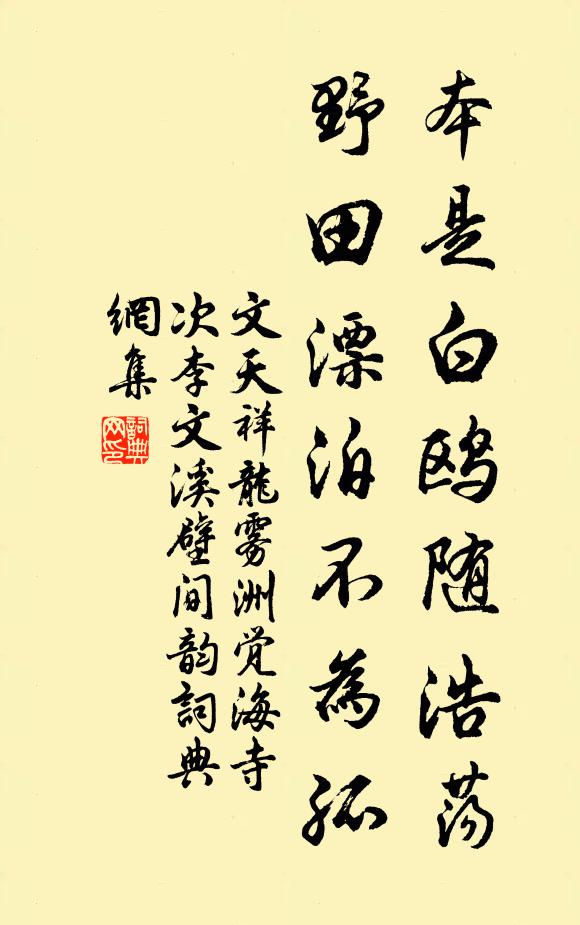 本是白鸥随浩荡
野田漂泊不為孤
文天祥龍雾洲覚海寺
次李文溪壁间韵詞典
網集
詞典
网印